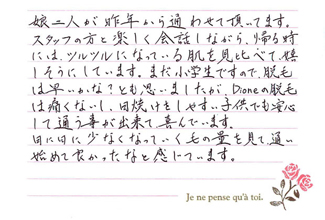 娘二人が昨年から通わせて頂いてます。
スタッフの方と楽しく会話しながら、帰る時
には、ツルツルになっている肌を見比べて嬉
しそうにしています。まだ小学生ですので、脱毛
は早いかな?とも思いましたが、Dioneの脱毛
は痛くないし、日焼けをしやすい子供でも安心
して通う事が出来て喜んでいます。
日に日に少なくなっていく毛の量を見て、通い
始めて良かったなと感じています。
Je ne pense qu'à toi.